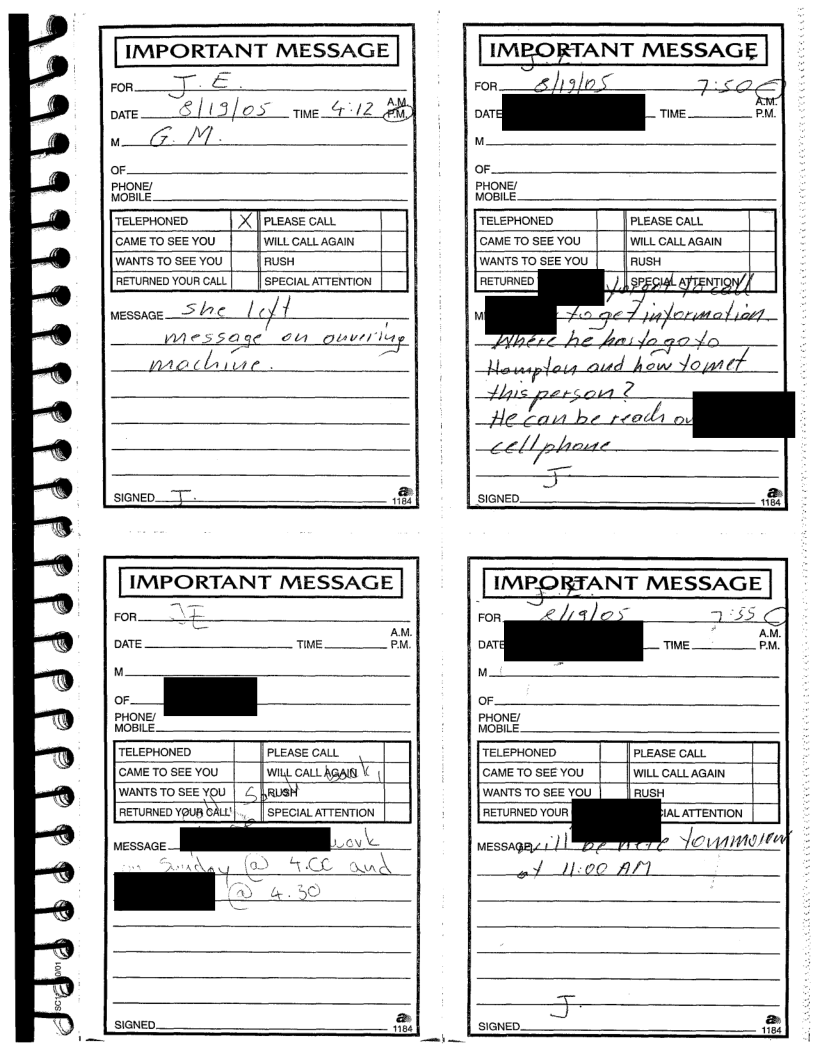 IMPORTANT MESSAGE
FOR J.E.
DATE 8/19/05 TIME 4:12 A.M. P.M.
M G.M.
OF
PHONE/
MOBILE
TELEPHONED X PLEASE CALL
CAME TO SEE YOU WILL CALL AGAIN
WANTS TO SEE YOU RUSH
RETURNED YOUR CALL SPECIAL ATTENTION
MESSAGE she left
message on onvering
machine.
SIGNED J.
1184
IMPORTANT MESSAGE
J.E.
FOR 8/19/05 7:50
DATE TIME A.M. P.M.
M
OF
PHONE/
MOBILE
TELEPHONED PLEASE CALL
CAME TO SEE YOU WILL CALL AGAIN
WANTS TO SEE YOU RUSH
RETURNED SPECIAL ATTENTION
forgot to call
to get information
Where he has to go to
Hampton and how to met
this person?
He can be reach on
cell phone.
J
SIGNED
1184
IMPORTANT MESSAGE
FOR JE
DATE TIME A.M. P.M.
M
OF
PHONE/
MOBILE
TELEPHONED PLEASE CALL
CAME TO SEE YOU WILL CALL AGAIN
WANTS TO SEE YOU RUSH
RETURNED YOUR CALL SPECIAL ATTENTION
MESSAGE work
on Sunday @ 4.00 and
@ 4.30
SIGNED
1184
IMPORTANT MESSAGE
J.E.
FOR 8/19/05 7:55
DATE TIME A.M. P.M.
M
OF
PHONE/
MOBILE
TELEPHONED PLEASE CALL
CAME TO SEE YOU WILL CALL AGAIN
WANTS TO SEE YOU RUSH
RETURNED YOUR SPECIAL ATTENTION
MESSAGE will be here tommorow
at 11:00 AM
J.
SIGNED
1184